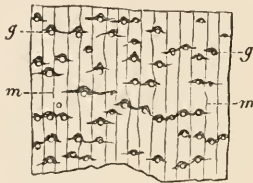 g
g
m
m